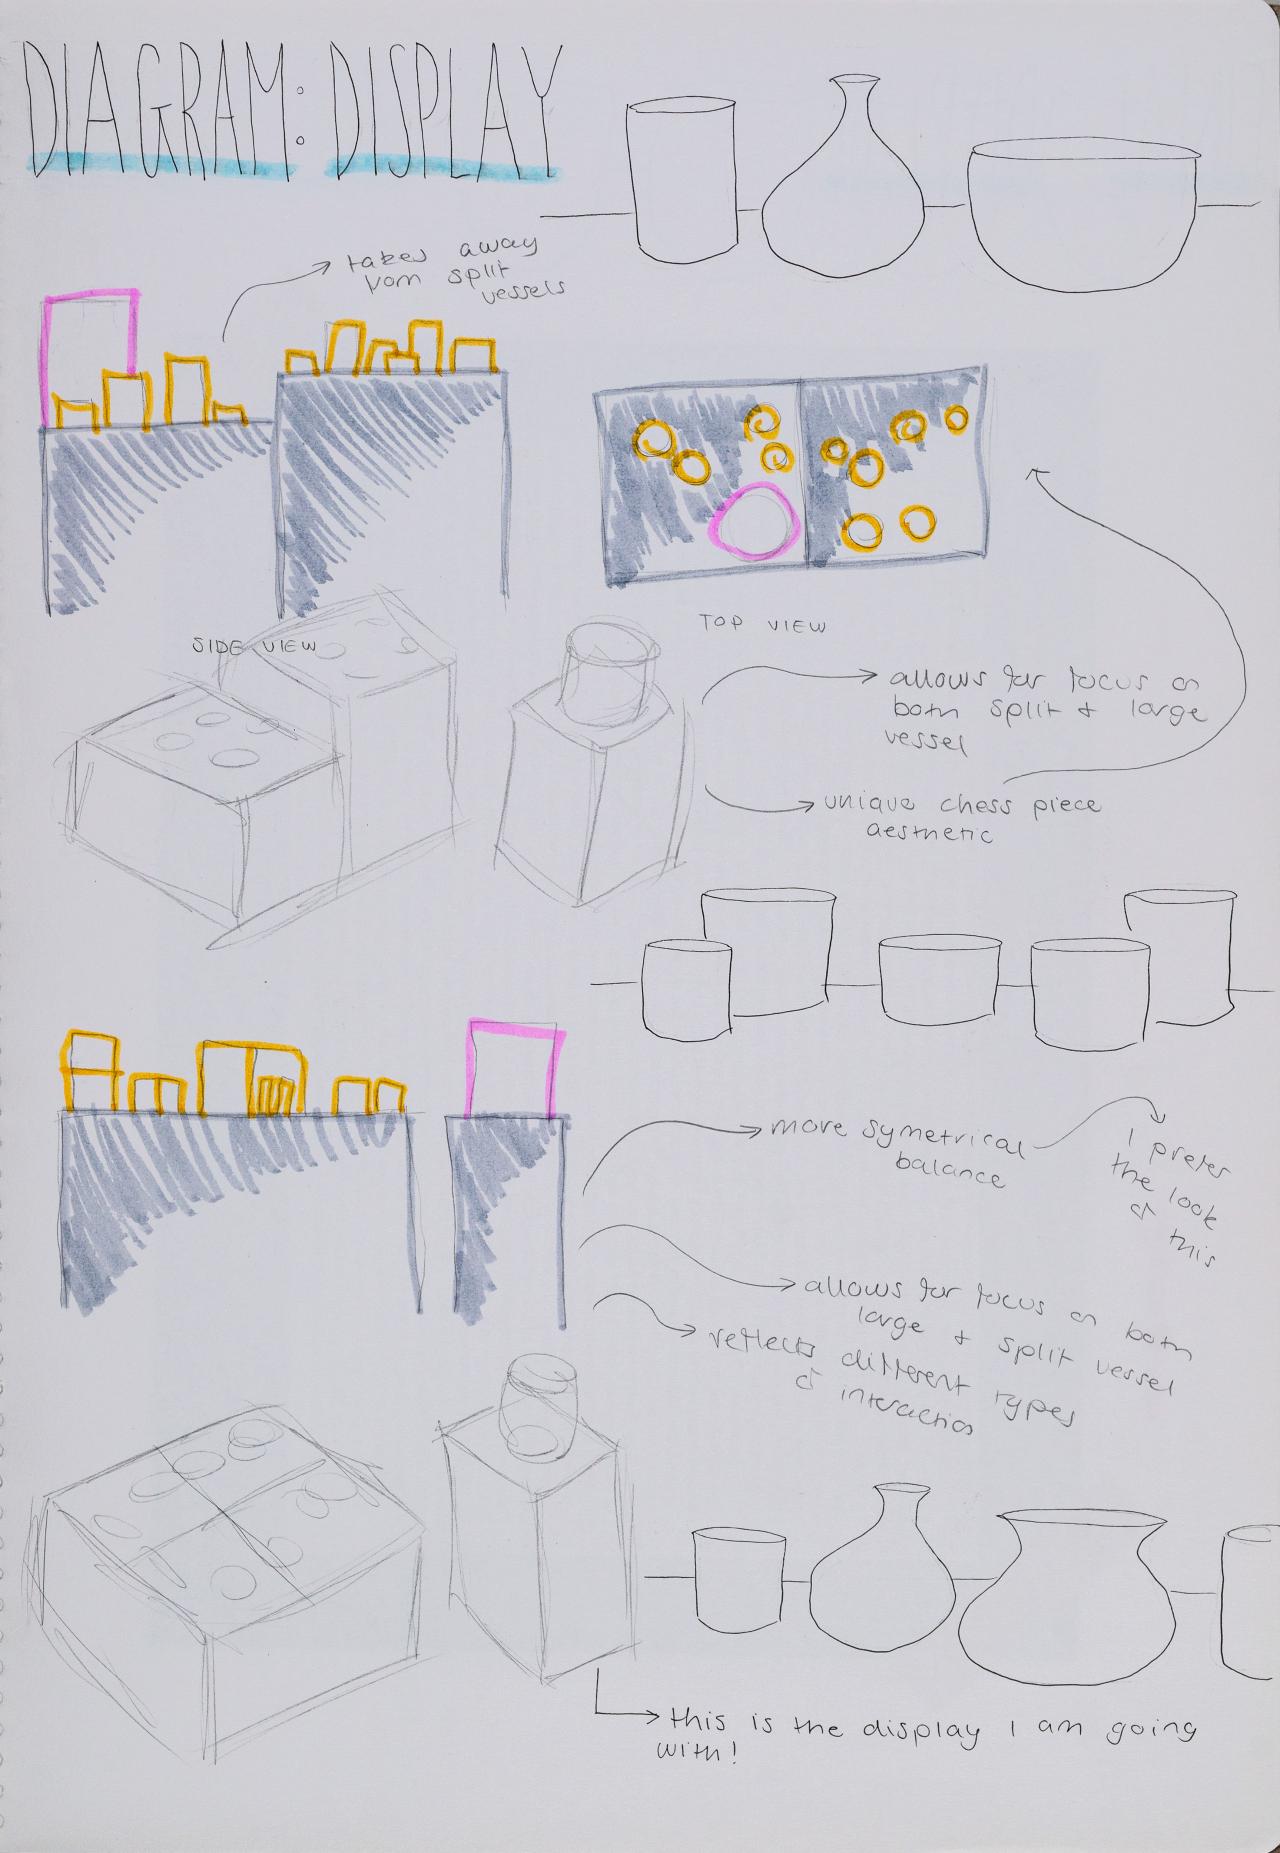 DIAGRAM: DISPLAY
takes away
from split
vessels
SIDE VIEW
TOP VIEW
allows for focus on
both split & large
vessel
unique chess piece
aesthetic
more symetrical
balance
I prefer
the look
of this
allows for focus on both
large & split vessel
reflects different types
of interaction
this is the display I am going
with!